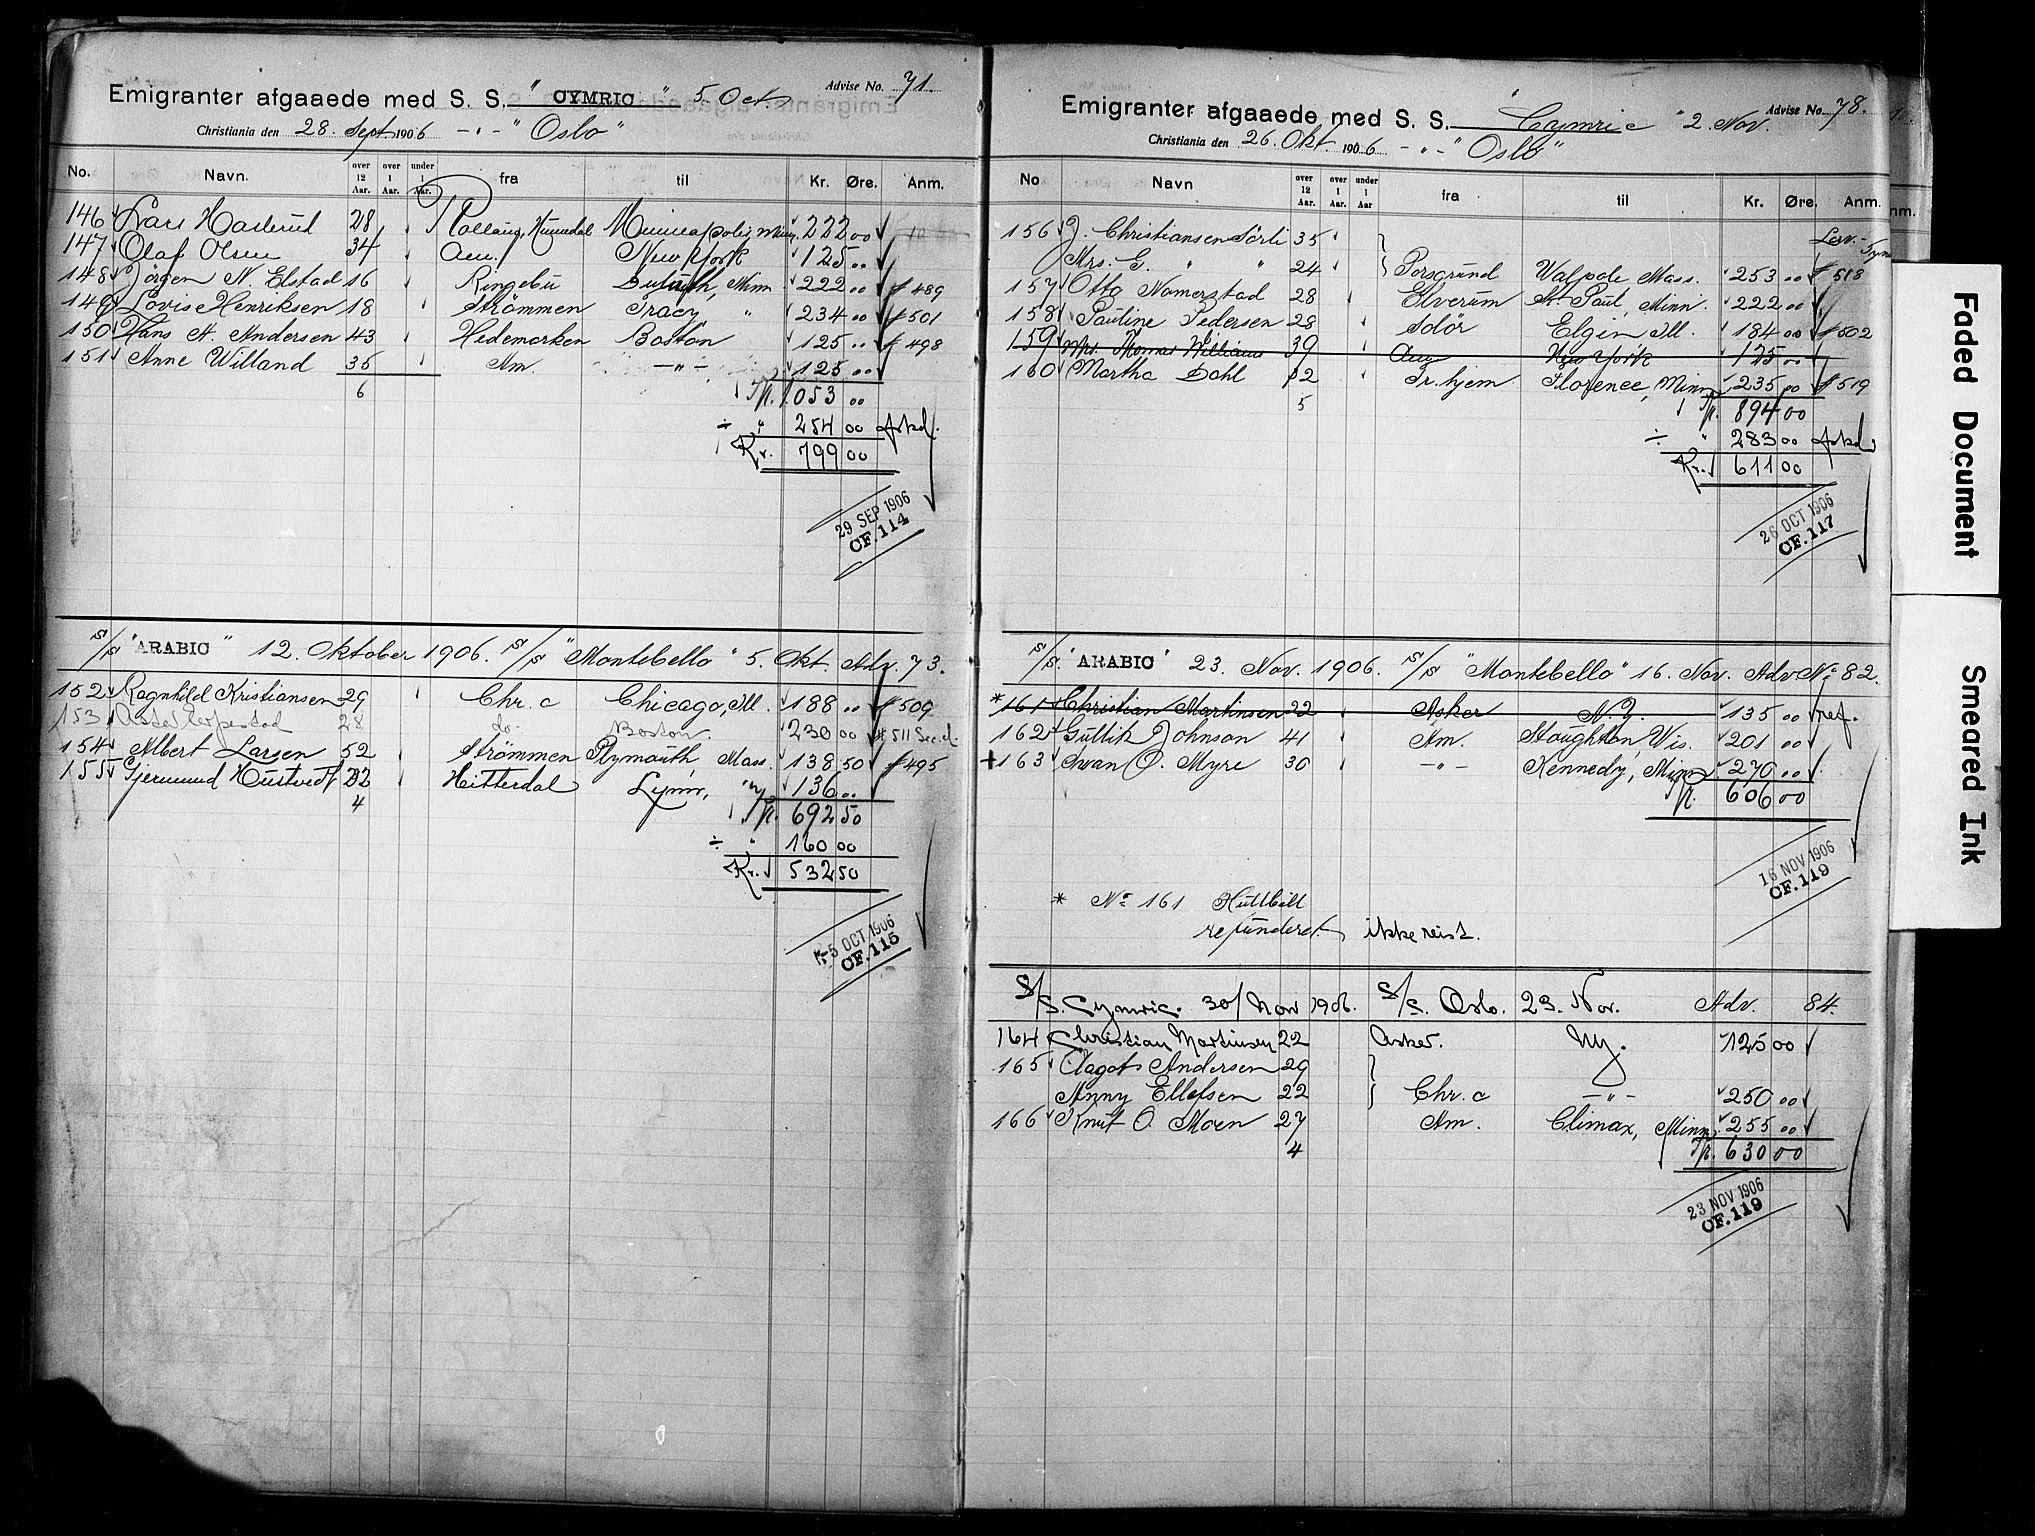 Emigranter afgaaede med S. S. " CYMRIC " 5. Oct. Advise No. 71.
Christiania den 28. Sept. 1906 - " - " Oslo "
No. Navn. over 12 Aar. over 1 Aar. under 1 Aar. fra til Kr. Øre. Anm.
146 Lars Haslerud 28 Minneapolis, Minn. 222 00
147 Olaf Olsen 34 Am. New York 125 "
148 Jörgen N. Elstad 16 Ringebu Duluth, Minn 222 " # 489
149 Lovis Henriksen 18 Strömmen Tracy, " 234 00 # 501
150 Hans A. Andersen 43 Hedemarken Boston 125 " # 498
151 Anne Willand 35 Am. - " - 125 "
6 1053 00
÷ " 254 00
Kr. 799 00
29 SEP 1906
CF. 114
S/S "ARABIC" 12. Oktober 1906. S/S "Montebello" 5. Okt. Adv. 73.
152 Ragnhild Kristiansen 29 Chr. a Chicago, Ill. 188 " # 509
153 28 do Boston 230 00 # 511
154 Albert Larsen 52 Strömmen Plymouth, Mass. 138 50 # 495
155 Gjermund Hustvedt 22 Hitterdal Lynn, " 136 "
4 692 50
÷ " 160 00
Kr. 532 50
5 OCT 1906
CF. 115
Emigranter afgaaede med S. S. " Cymric " 2. Nov. Advise No. 78.
Christiania den 26. Okt. 1906 - " - " Oslo "
No. Navn over 12 Aar. over 1 Aar. under 1 Aar fra til Kr. Øre. Anm.
156 J. Christiansen Sörli 35
Mrs. G. " " 24 Porsgrund Walpole Mass. 253 " # 518
157 Otto Nomerstad 28 Elverum St. Paul, Minn. 222 00
158 Pauline Pedersen 28 Elgin Ill. 184 00 # 502
159 Mr. Thomas Williams 39 Am. New York 125 "
160 Martha Dahl 12 Tr.hjem Florence, Minn 235 00 # 519
5 894 00
÷ " 283 00
Kr. 611 00
26 OCT 1906
CF. 117
S/S. "ARABIC" 23. Nov. 1906. S/S "Montebello" 16. Nov. Adv No 82.
* 161 Christian Martinsen 22 Asker N.Y. 135 00 ref.
162 Gullik Johnson 41 Am. Stoughton Wis. 201 00
+ 163 Swan O. Myre 30 - " - Kennedy, Minn 270 "
606 00
16 NOV 1906
CF. 119
* No 161
refunderet. ikke reist.
S/S. Cymric. 30/ Nov 1906. S/S. Oslo. 23. Nov. Adv. 84.
164 Christian Martinsen 22 Asker. Ny. 125 00
165 Aagot Andersen 29
Anny Ellefsen 22 Chr. a - " - 250 00
166 Knut O. Moen 27 Am. Climax, Minn. 255 00
4 630 00
23 NOV 1906
CF. 119
Faded Document
Smeared Ink